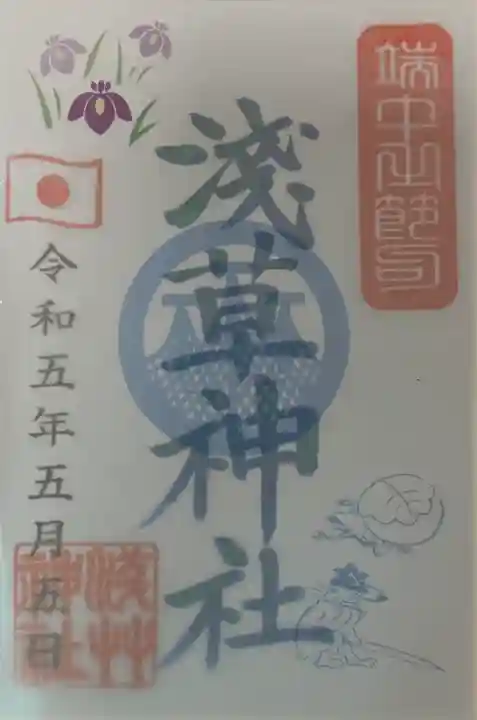 端午之節句
浅草神社
令和五年五月五日
浅草
神社